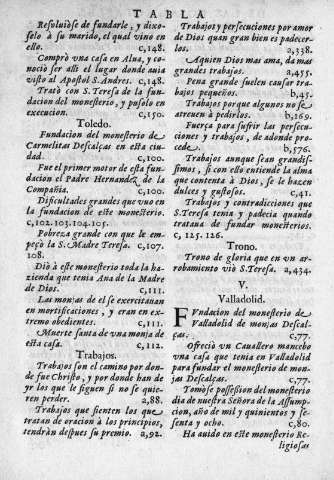 TABLA
Resoluiòse de fundarle, y dixo-
selo à su marido, el qual vino en
ello. c,148.
Comprò vna casa en Alua, y co-
nociò ser alli el lugar donde auia
visto al Apostol S. Andres. c,148.
Tratò con S. Teresa de la fun-
dacion del monesterio, y pusolo en
execucion. c,150.
Toledo.
Fundacion del monesterio de
Carmelitas Descalças en esta ciu-
dad. c,100.
Fue el primer motor de esta fun-
dacion el Padre Hernandez de la
Compañia. c,100.
Dificultades grandes que vuo en
la fundacion de este monesterio.
c,102.103.104.105.
Pobreza grande con que le em-
peçò la S. Madre Teresa. c,107.
108.
Diò à este monesterio toda la ha-
zienda que tenia Ana de la Madre
de Dios. c,111.
Las monjas de el se exercitanan
en mortificaciones, y eran en ex-
tremo obedientes. c,111.
Muerte santa de vna monja de
esta casa. c,112.
Trabajos.
Trabajos son el camino por don-
de fue Christo, y por donde han de
yr los que le siguen si no se quie-
ren perder. 2,88.
Trabajos que sienten los que
tratan de oracion à los principios,
tendràn despues su premio. 2,92.
Trabajos y persecuciones por amor
de Dios quan gran bien es padecer-
los. 2,338.
Aquien Dios mas ama, da mas
grandes trabajos. 2,455.
Pena grande suelen causar tra-
bajos pequeños. b,45.
Trabajos porque algunos no se
atreuen à pedirlos. b,169.
Fuerça para sufrir las persecu-
ciones y trabajos, de adonde pro-
cede. b,576.
Trabajos aunque sean grandis-
simos, si con ello entiende la alma
que contenta à Dios, se le hazen
dulces y gustosos. c,41.
Trabajos y contradicciones que
S. Teresa tenia y padecia quando
trataua de fundar monesterios.
c, 125. 126.
Trono.
Trono de gloria que en vn ar-
robamiento viò S. Teresa. 2,434.
V.
Valladolid.
FVndacion del monesterio de
Valladolid de monjas Descal-
ças. c,77.
Ofreciò vn Cauallero mancebo
vna casa que tenia en Valladolid
para fundar el monesterio de mon-
jas Descalças. c,77.
Tomòse possession del monesterio
dia de nuestra Señora de la Assump-
cion, año de mil y quinientos y se-
senta y ocho. c,80.
Ha auido en este monesterio Re-
ligiosas